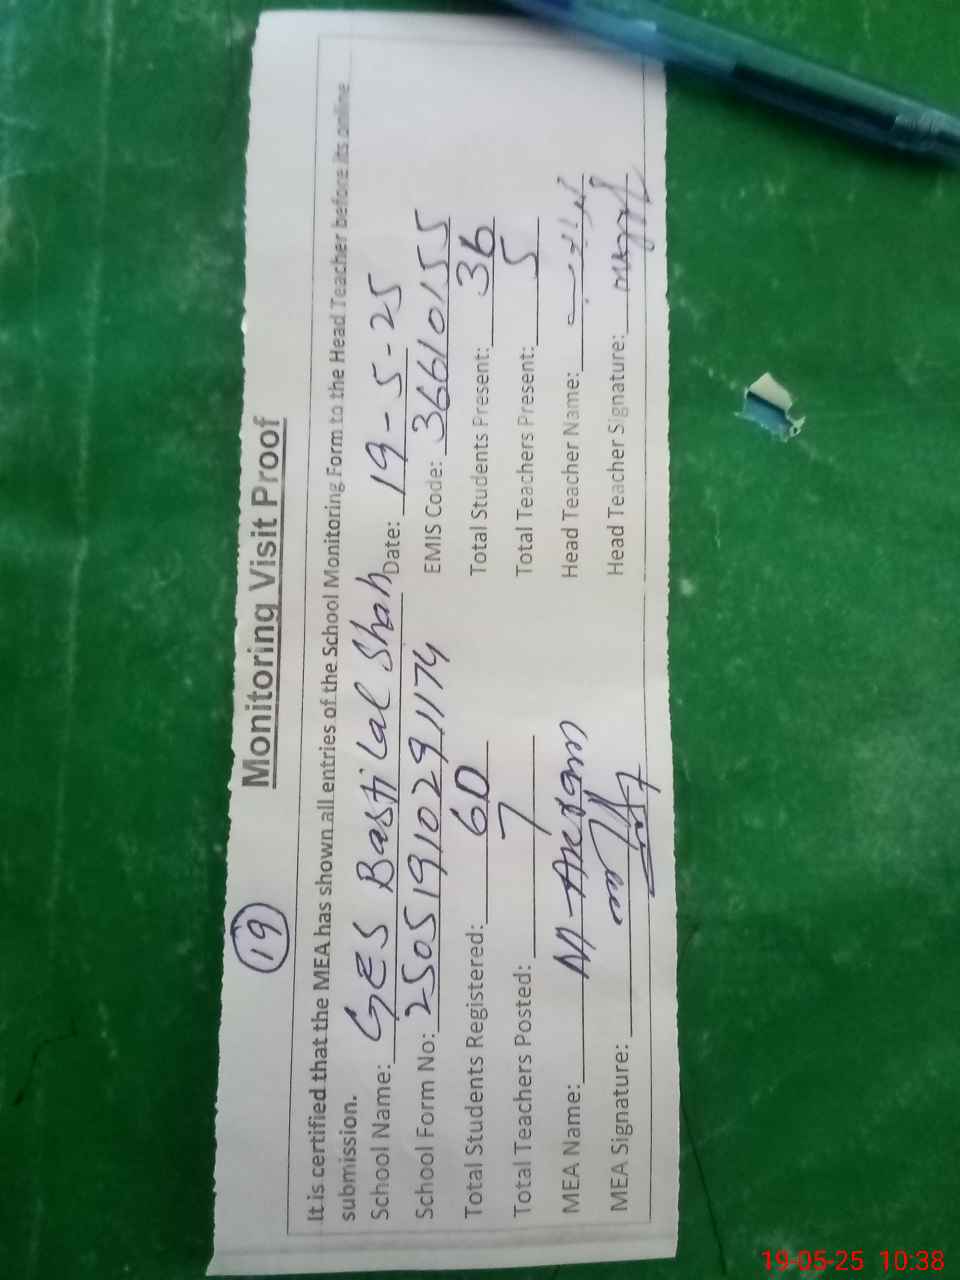 19
Monitoring Visit Proof
It is certified that the MEA has shown all entries of the School Monitoring Form to the Head Teacher before its online
submission.
School Name: GES Basti Lal Shah Date: 19-5-25
School Form No: 25051910291174 EMIS Code: 36610155
Total Students Registered: 60 Total Students Present: 36
Total Teachers Posted: 7 Total Teachers Present: 5
MEA Name: M Head Teacher Name:
MEA Signature: Head Teacher Signature:
19-05-25 10:38